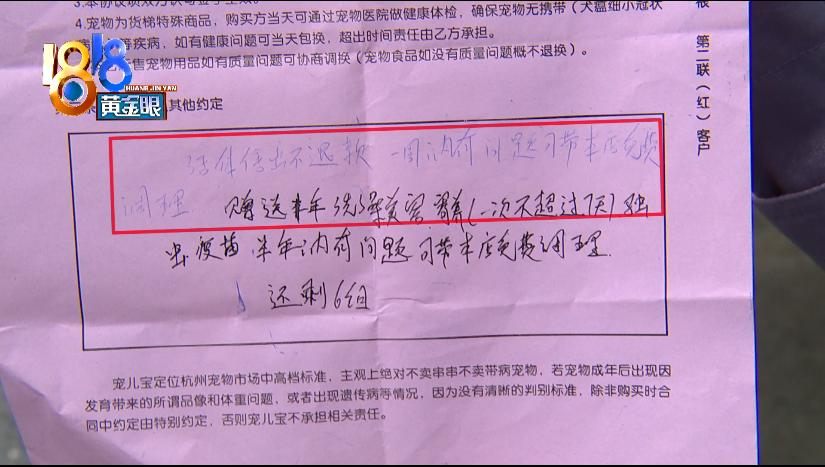 4.宠物为货梯特殊商品，购买方当天可通过宠物医院做健康体检，确保宠物无携带（犬瘟细小冠状
等疾病，如有健康问题可当天包换，超出时间责任由乙方承担。
售宠物用品如有质量问题可协商调换（宠物食品如没有质量问题概不退换）。
1818
HUANG JIN YAN
黄金眼
其他约定
活体售出不退款 一周内有问题可带来店免费
调理 赠送半年洗澡美容 寄养(一次不超过7天)
出疫苗 半年内有问题可带来店免费调理
还剩6组
宠儿宝定位杭州宠物市场中高档标准，主观上绝对不卖串串不卖带病宠物，若宠物成年后出现因
发育带来的所谓品像和体重问题，或者出现遗传病等情况，因为没有清晰的判别标准，除非购买时合
同中约定由特别约定，否则宠儿宝不承担相关责任。
第二联（红）客户